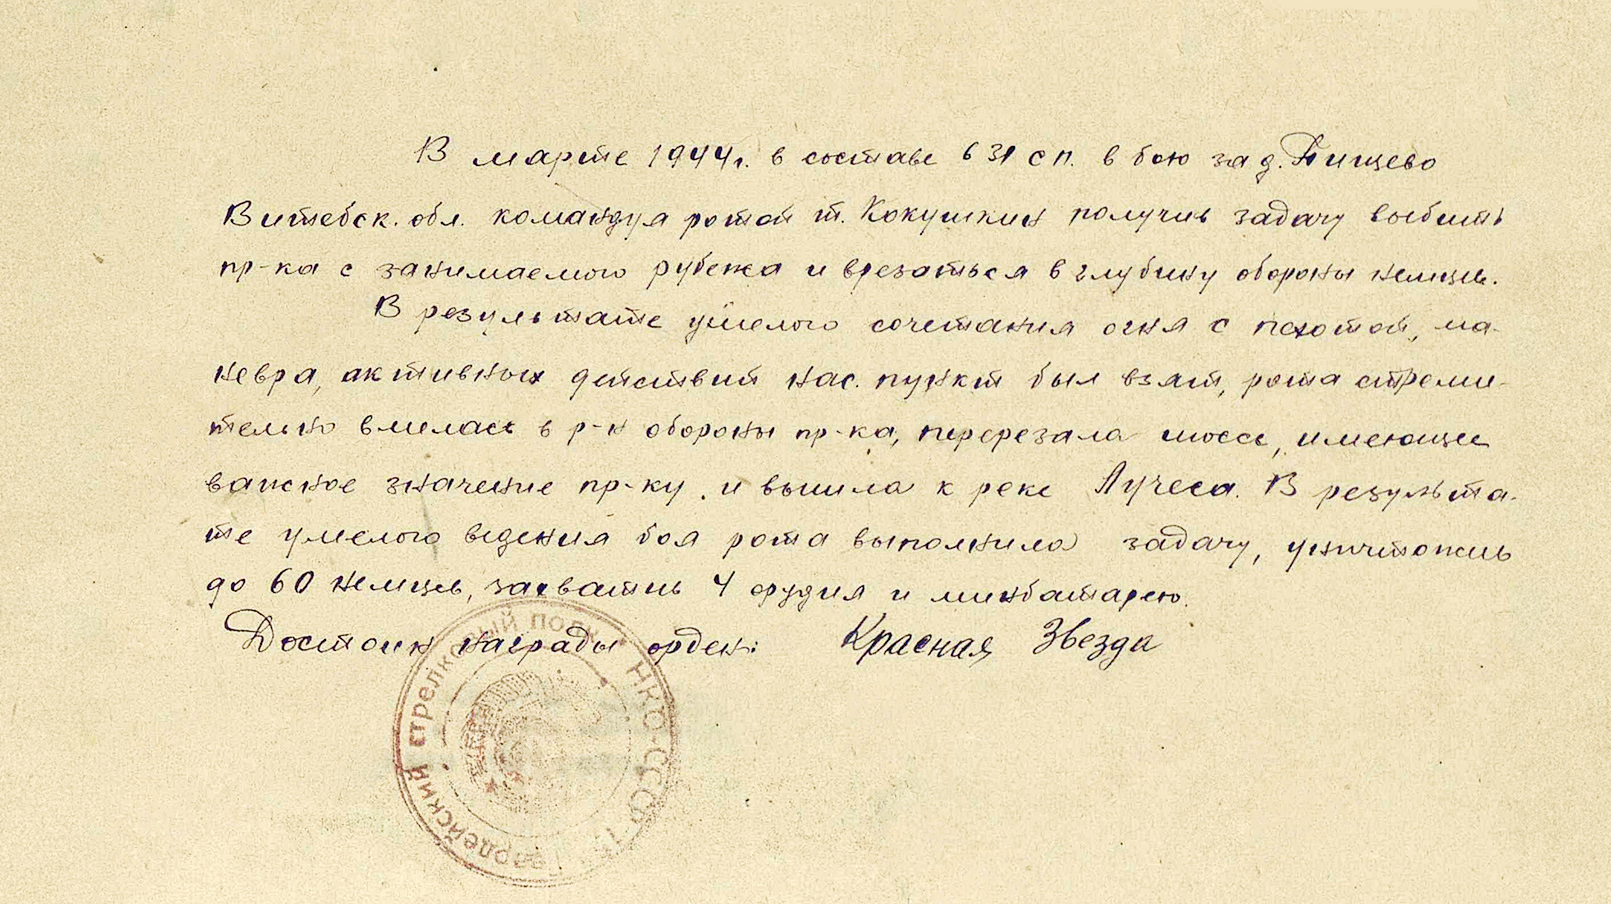 В марте 1944г. в составе 631 сп. в бою за д. Пищево
Витебск. обл. командуя ротой т. Кокушкин получив задачу выбить
пр-ка с занимаемого рубежа и врезаться в глубину обороны немцев.
В результате умелого сочетания огня с пехотой, ма-
невра, активных действий нас. пункт был взят, рота стреми-
тельно вмилась в р-н обороны пр-ка, перерезала шоссе, имеющее
важное значение пр-ку, и вышла к реке Лучеса. В результа-
те умелого ведения боя рота выполнила задачу, уничтожив
до 60 немцев, захватив 4 орудия и минбатарею.
Достоин награды орден: Красная Звезда
гвардейский стрелковый полк НКО-СССР